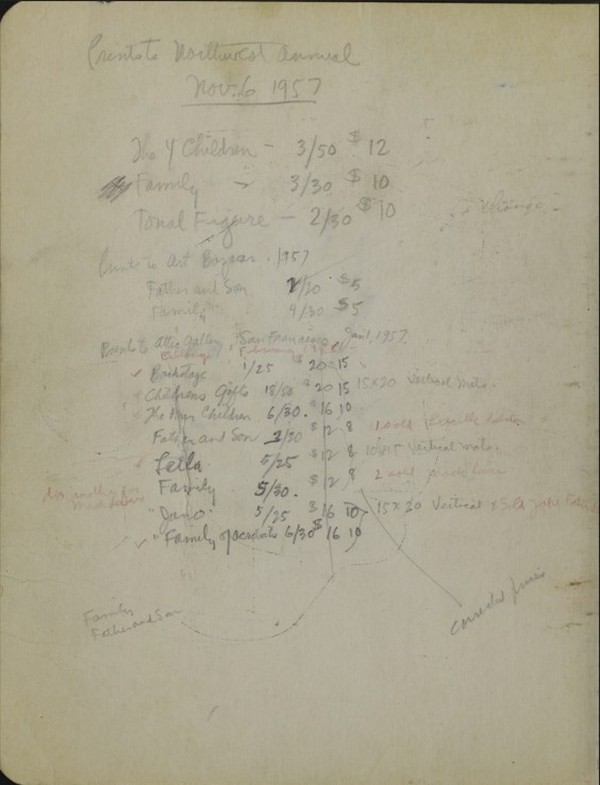 Prints to Northwest Annual
Nov. 6 1957
The 4 Children - 3/50 $12
Family - 3/30 $10
Tonal Figure - 2/30 $10
Prints to Art Bazaar. 1957
Father and Son 2/20 $5
Family 4/30 $5
Prints to Attic Gallery, San Francisco Jan 1, 1957
Backstage 1/25 $20 15
Childrens Gifts 18/50 $20 15 15x20 Vertical Mats.
The Four Children 6/30. $16 10
Father and Son 2/30 $12 8 1 sold
Leila 5/25 $12 8 Vertical Mats.
Family 5/30. $12 8 2 sold
"Jano" 5/25 $16 10 15x20 Vertical
"Family of acrobats 6/30 $16 10
Family
Father and Son
corrected prices